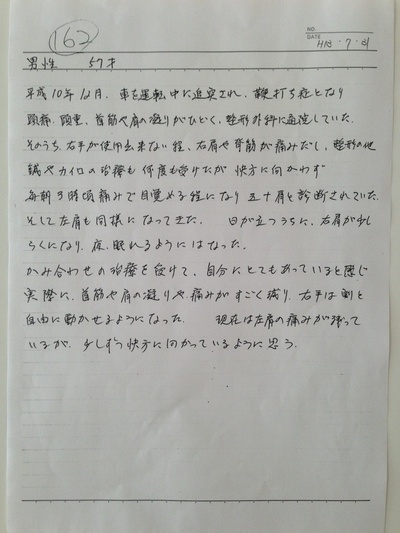 162
NO.
DATE H18・7・31
男性　57才
平成10年12月、車を運転中に追突され、鞭打ち症となり
頭痛、頭重、首筋や肩の凝りがひどく、整形外科に通院していた。
そのうち、右手が使用出来ない程、右肩や背筋が痛みだし、整形の他
鍼やカイロの治療も何度も受けたが快方に向かわず
毎朝3時頃痛みで目覚める程になり五十肩と診断されていた。
そして左肩も同様になってきた。　日が立つうちに、右肩が少し
らくになり、夜、眠れるようにはなった。
かみ合わせの治療を受けて、自分にとてもあっていると感じ
実際に、首筋や肩の凝りや痛みがすごく減り、右手は割と
自由に動かせるようになった。　現在は左肩の痛みが残って
いるが、少しずつ快方に向かっているように思う。